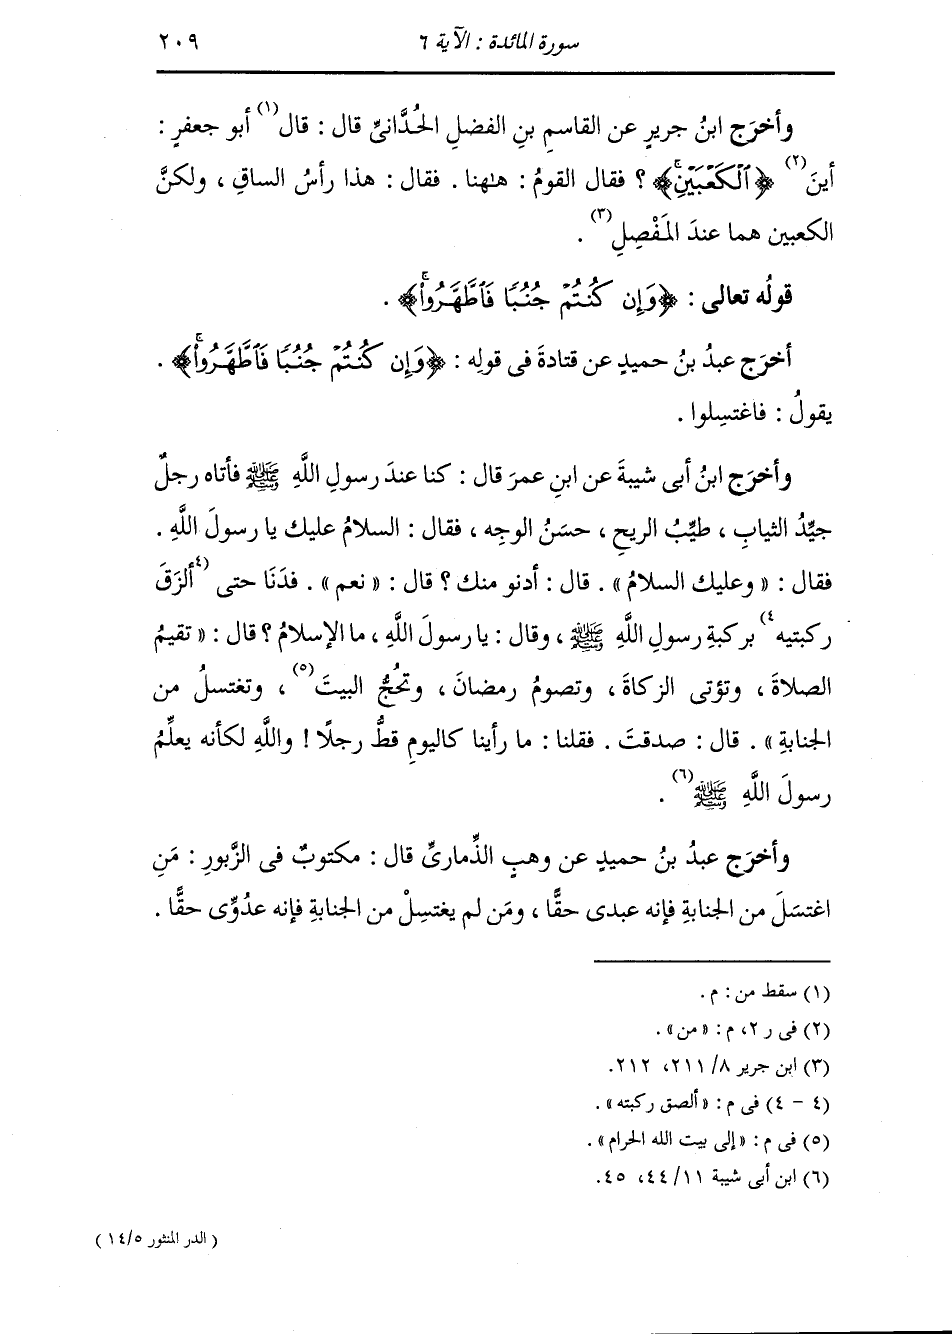 سورة المائدة : الآية ٦ ٢٠٩
وأخرَج ابنُ جريرٍ عن القاسمِ بنِ الفضلِ الحُدَّانىِّ قال : قال(١) أبو جعفرٍ :
أينَ(٢) ﴿ٱلۡكَعۡبَيۡنِۚ﴾ ؟ فقال القومُ : هلهنا . فقال : هذا رأسُ الساقِ ، ولكنَّ
الكعبين هما عندَ المَفْصِلِ(٣) .
قولُه تعالى : ﴿وَإِن كُنتُمۡ جُنُبٗا فَٱطَّهَّرُواْۚ﴾ .
أخرَج عبدُ بنُ حميدٍ عن قتادةَ فى قولِه : ﴿وَإِن كُنتُمۡ جُنُبٗا فَٱطَّهَّرُواْۚ﴾ .
يقولُ : فاغتسِلوا .
وأخرَج ابنُ أبى شيبةَ عن ابنِ عمرَ قال : كنا عندَ رسولِ اللَّهِ ﷺ فأتاه رجلٌ
جيِّدُ الثيابِ ، طيِّبُ الريحِ ، حسَنُ الوجهِ ، فقال : السلامُ عليك يا رسولَ اللَّهِ .
فقال : « وعليك السلامُ » . قال : أدنو منك ؟ قال : « نعم » . فدَنَا حتى (٤ألزَقَ
ركبتيه٤) بركبةِ رسولِ اللَّهِ ﷺ ، وقال : يا رسولَ اللَّهِ ، ما الإسلامُ ؟ قال : « تقيمُ
الصلاةَ ، وتؤتى الزكاةَ ، وتصومُ رمضانَ ، وتحُجُّ البيتَ(٥) ، وتغتسلُ من
الجنابةِ » . قال : صدقتَ . فقلنا : ما رأينا كاليومِ قطُّ رجلًا ! واللَّهِ لكأنه يعلِّمُ
رسولَ اللَّهِ ﷺ(٦) .
وأخرَج عبدُ بنُ حميدٍ عن وهبٍ الذِّمارىِّ قال : مكتوبٌ فى الزَّبورِ : مَن
اغتسَلَ من الجنابةِ فإنه عبدى حقًّا ، ومَن لم يغتسِلْ من الجنابةِ فإنه عدُوِّى حقًّا .
(١) سقط من : م .
(٢) فى ر ٢، م : « من » .
(٣) ابن جرير ٨/ ٢١١، ٢١٢.
(٤ - ٤) فى م : « ألصق ركبته » .
(٥) فى م : « إلى بيت الله الحرام » .
(٦) ابن أبى شيبة ١١/ ٤٤، ٤٥.
( الدر المنثور ١٤/٥ )